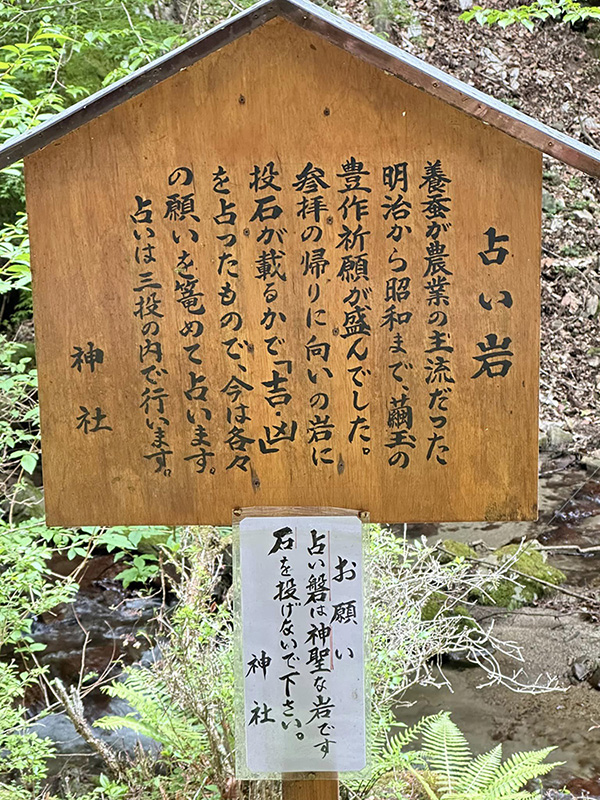 占い岩
養蚕が農業の主流だった
明治から昭和まで、繭玉の
豊作祈願が盛んでした。
参拝の帰りに向いの岩に
投石が載るかで「吉・凶」
を占ったもので、今は各々
の願いを篭めて占います。
占いは三投の内で行います。
神社
お願い
占い磐は神聖な岩です
石を投げないで下さい。
神社